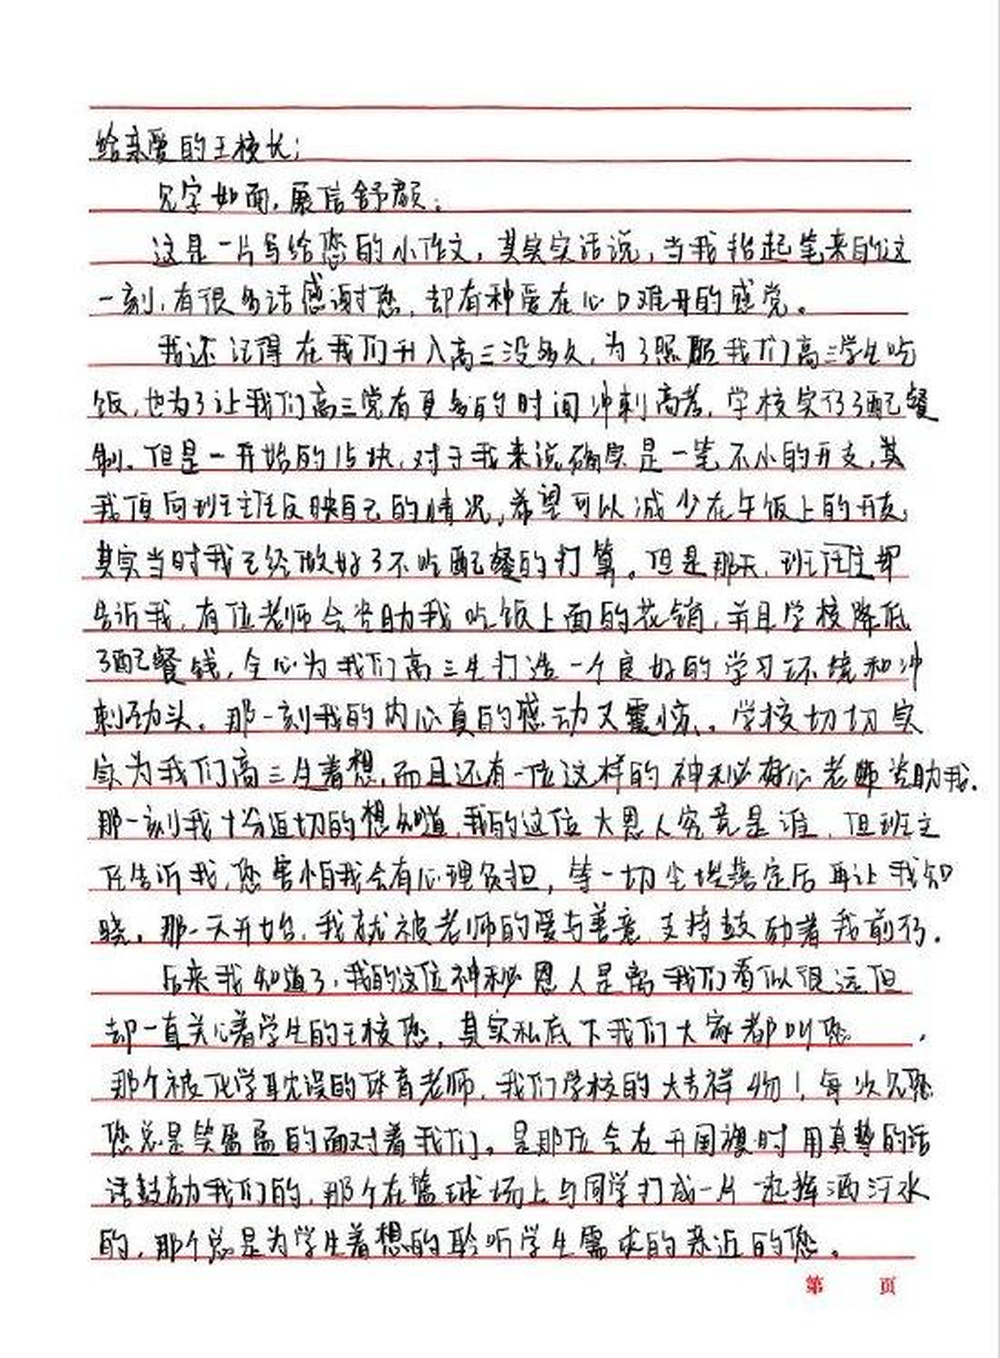 给亲爱的王校长:
见字如面,展信舒颜。
这是一片写给您的小作文,其实实话说,当我抬起笔来的这
一刻,有很多话感谢您,却有种爱在心口难开的感觉。
我还记得在我们升入高三没多久,为了照顾我们高三学生吃
饭,也为了让我们高三党有更多的时间冲刺高考,学校实行了配餐
制。但是一开始的15块,对于我来说确实是一笔不小的开支,其
我顶向班主任反映自己的情况,希望可以减少在午饭上的开支,
其实当时我已经做好了不吃配餐的打算。但是那天,班任主却
告诉我,有位老师会资助我吃饭上面的花销,并且学校降低
了配餐钱,全心为我们高三生打造一个良好的学习环境和冲
刺劲头。那一刻我的内心真的感动又震惊。学校切切实
实为我们高三生着想,而且还有一位这样的神秘好心老师资助我.
那一刻我十分迫切的想知道,我的这位大恩人究竟是谁,但班主
任告诉我,您害怕我会有心理负担,等一切尘埃落定后再让我知
晓。那一天开始,我就被老师的爱与善意支持鼓励着我前行.
后来我知道了,我的这位神秘恩人是离我们看似很远但
却一直关心着学生的王校您,其实私底下我们大家都叫您,
那个被化学耽误的体育老师,我们学校的大吉祥物!每次见您
您总是笑盈盈的面对着我们。是那位会在升国旗时用真挚的话
语鼓励我们的,那个在篮球场上与同学打成一片一起挥洒汗水
的,那个总是为学生着想的聆听学生需求的亲近的您。
第 页